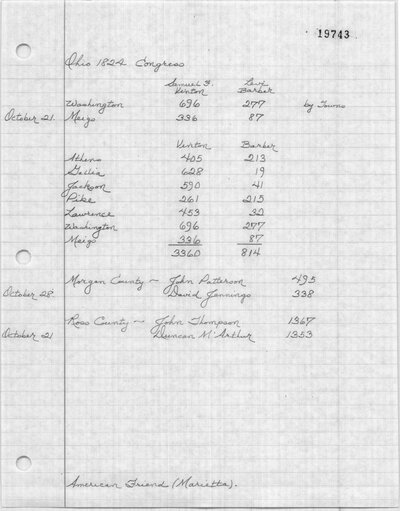 19743
Ohio 1824 Congress
Samuel F. Vinton Levi Barber
Washington 696 277 by Towns
October 21. Meigs 336 87
Vinton Barber
Athens 405 213
Gallia 628 19
Jackson 590 41
Pike 261 215
Lawrence 453 32
Washington 696 277
Meigs 336 87
3360 814
Morgan County ~ John Patterson 495
October 28 David Jennings 338
Ross County ~ John Thompson 1367
October 21 Duncan McArthur 1353
American Friend (Marietta).